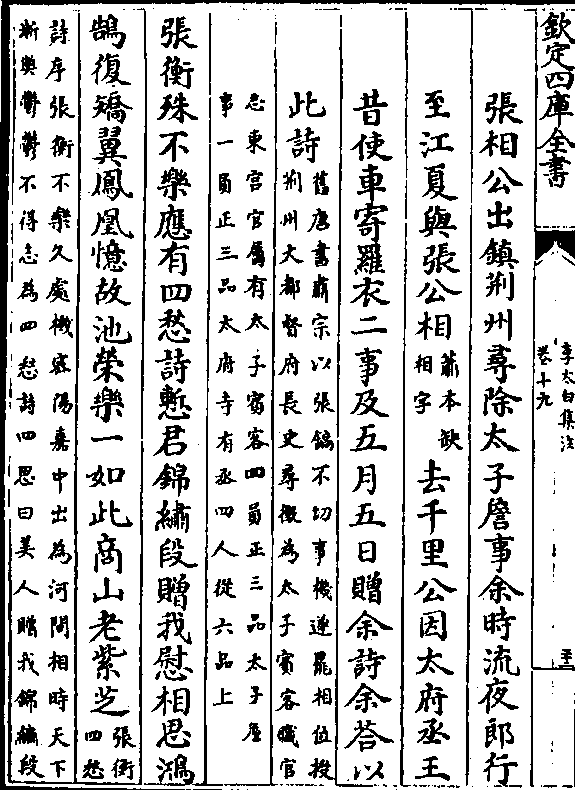 欽定四庫全書
李太白集注
卷十九
張相公出鎮荆州尋除太子詹事余時流夜郎行
至江夏與張公相
蕭本缺
相字
去千里公因太府丞王
昔使車寄羅衣二事及五月五日贈余詩余荅以
此詩
舊唐書肅宗以張鎬不切事機遂罷相位授
荆州大都督府長史尋徵為太子賓客職官
志東宫官屬有太子賓客四員正三品太子詹
事一員正三品太府寺有丞四人從六品上
張衡殊不樂應有四愁詩慙君錦繡段贈我慰相思鴻
鵠復矯翼鳳凰憶故池榮樂一如此商山老紫芝
張衡
四愁
詩序張衡不樂久處機密陽嘉中出為河間相時天下
漸弊鬱鬱不得志為四愁詩四思曰美人贈我錦繡段